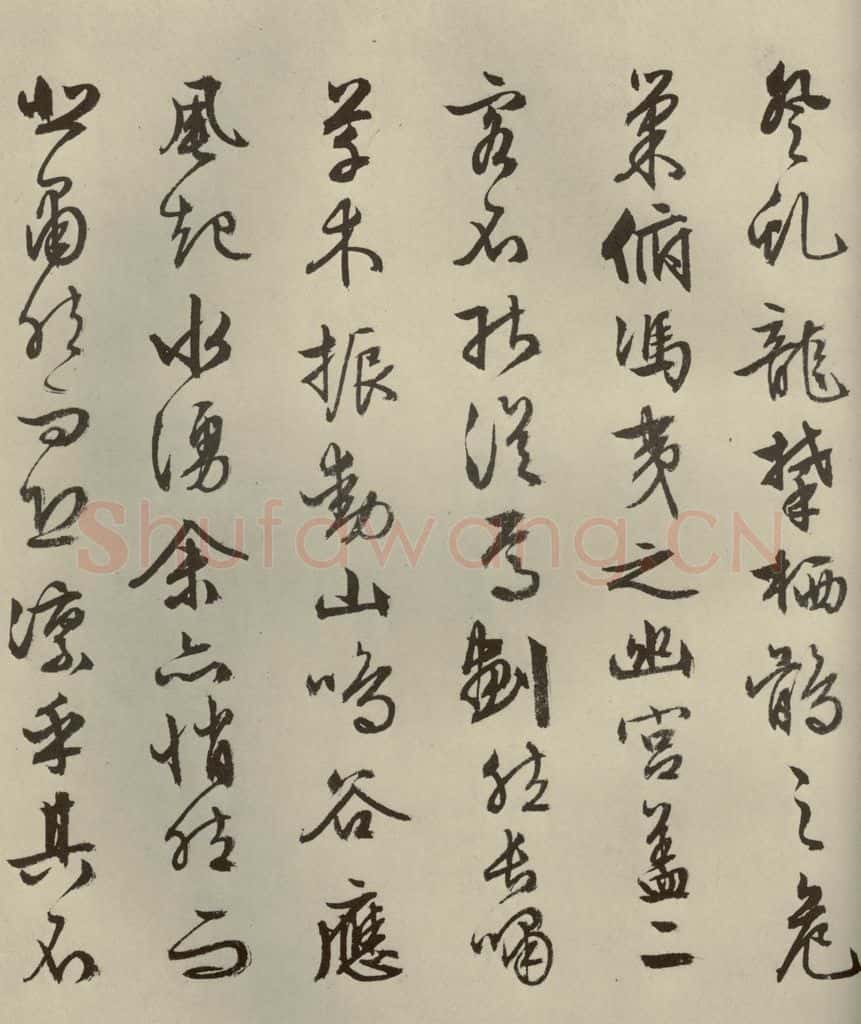 登虬龍攀栖鶻之危
巢俯馮夷之幽宮蓋二
客不能從焉劃然長嘯
草木振動山鳴谷應
風起水湧余亦悄然而
悲肅然而恐凛乎其不
Shufawang.CN